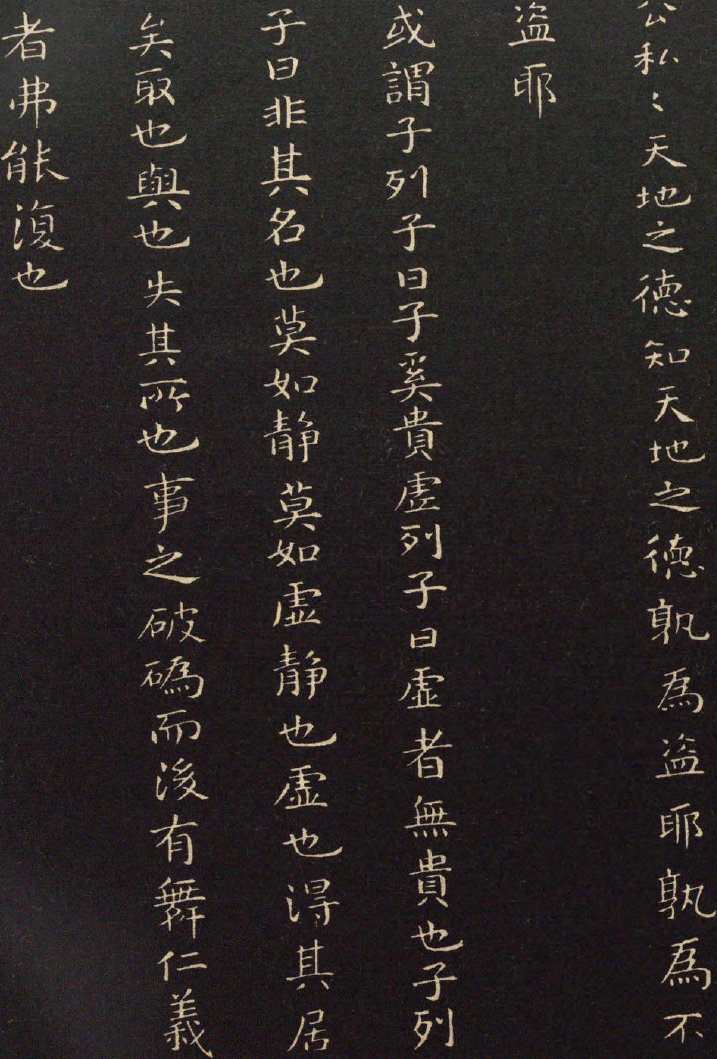 公私〻天地之德知天地之德孰為盗耶孰為不
盗耶
或謂子列子曰子奚貴虚列子曰虚者無貴也子列
子曰非其名也莫如静莫如虚静也虚也得其居
矣取也與也失其所也事之破䃣而後有舞仁義
者弗能復也